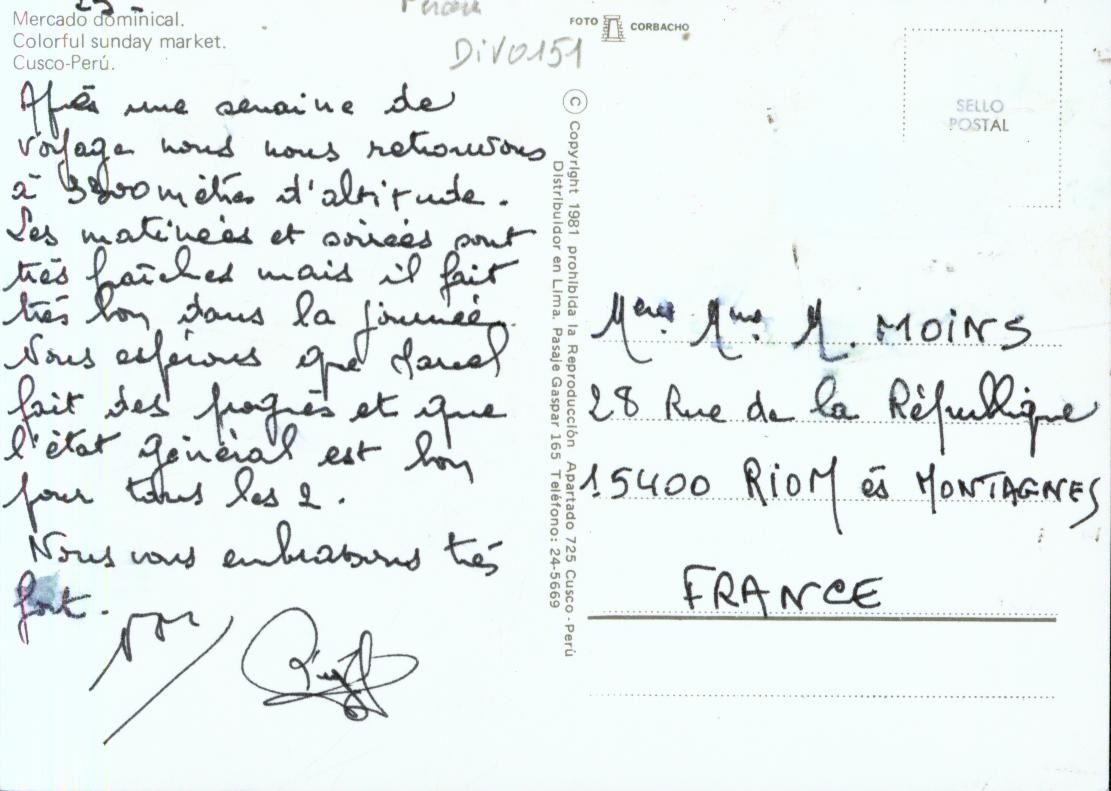 Mercado dominical.
Colorful sunday market.
Cusco-Perú.
DIV0151
Après une semaine de
voyage nous nous retrouvons
à 3800 mètres d'altitude.
Les matinées et soirées sont
très fraîches mais il fait
très bon dans la journée.
Nous espérons que Marcel
fait des progrès et que
l'état général est bon
pour tous les 2.
Nous vous embrassons très
fort.
© Copyright 1981 prohibida la Reproducción Apartado 725 Cusco-Perú
Distribuidor en Lima. Pasaje Gaspar 165 Teléfono: 24-5669
FOTO CORBACHO
SELLO
POSTAL
M. MOINS
28 Rue de la République
15400 RIOM ès MONTAGNES
FRANCE